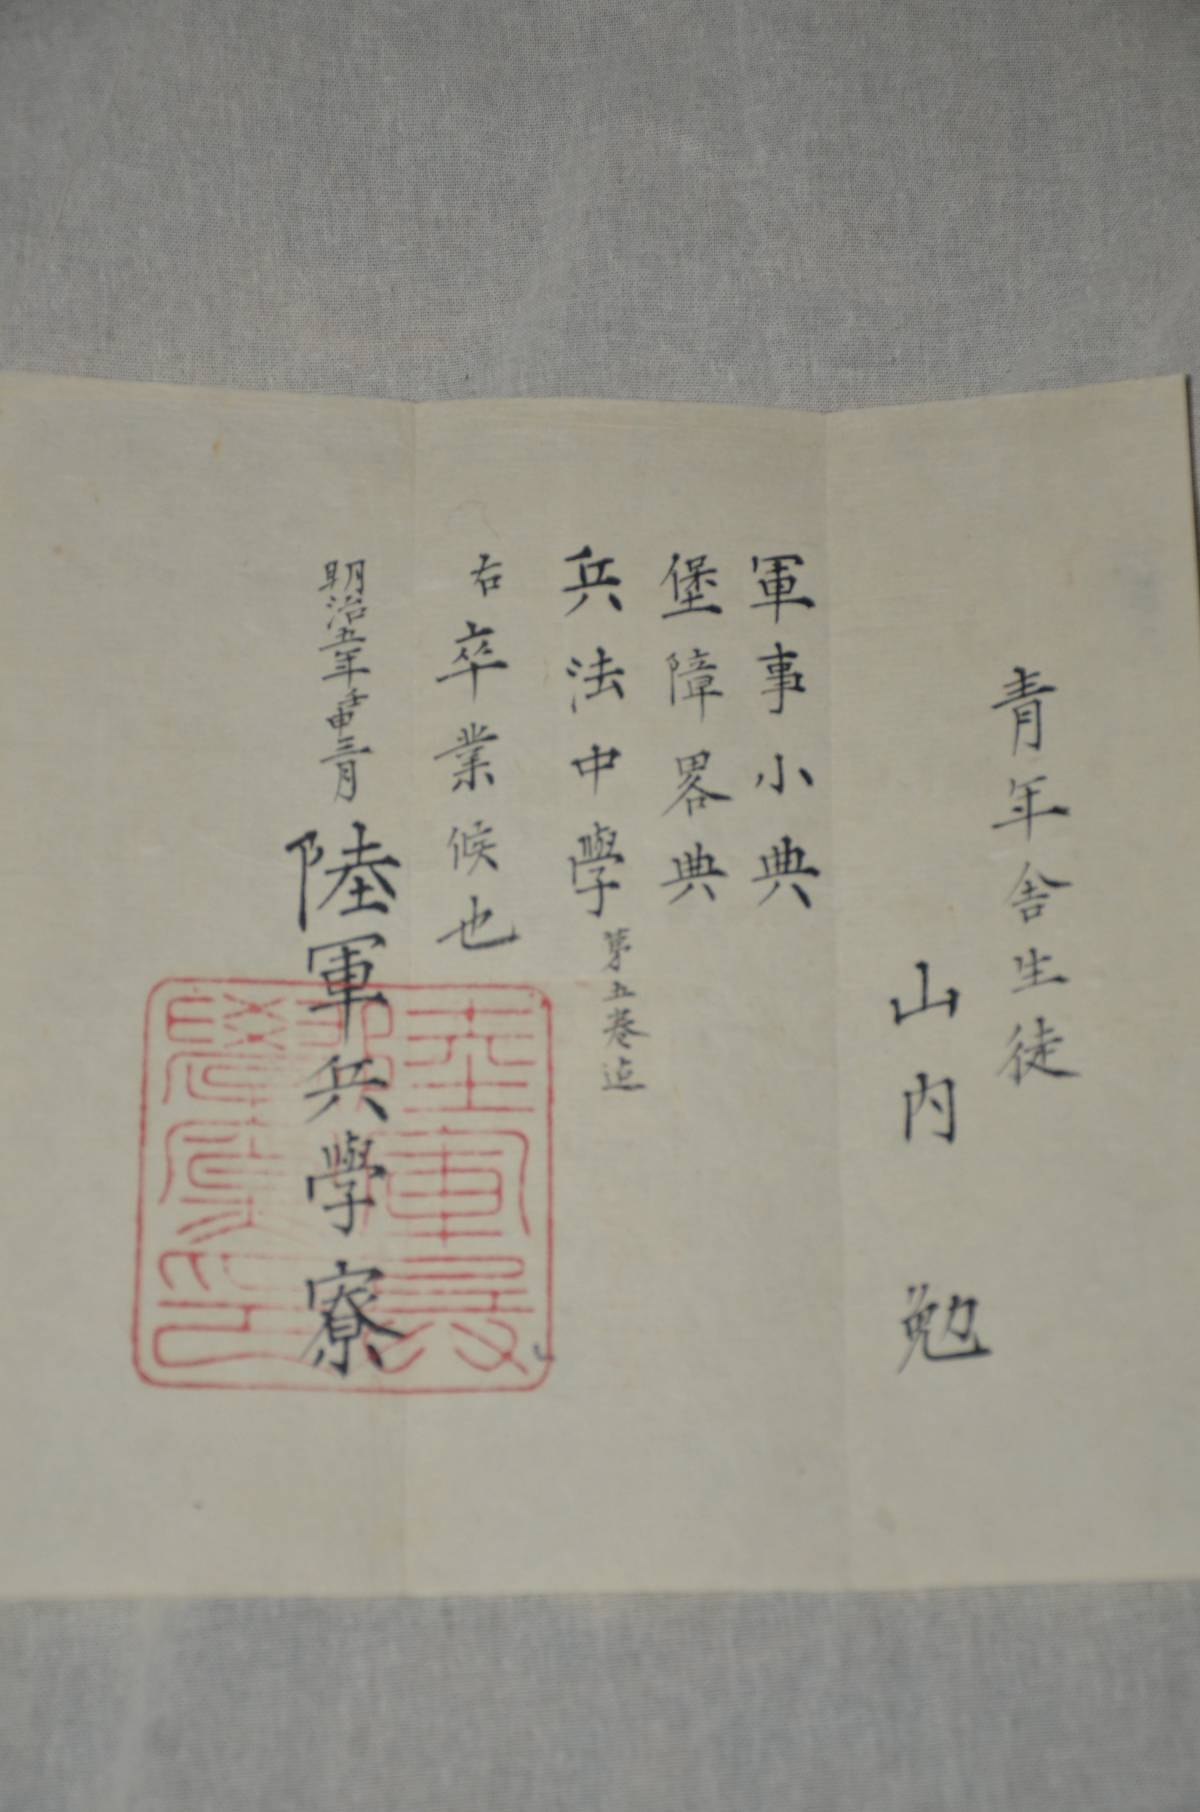 青年舎生徒
山内勉
軍事小典
堡障畧典
兵法中學 第五巻迠
右卒業候也
明治五年壬申三月
陸軍兵學寮
陸軍兵學寮印